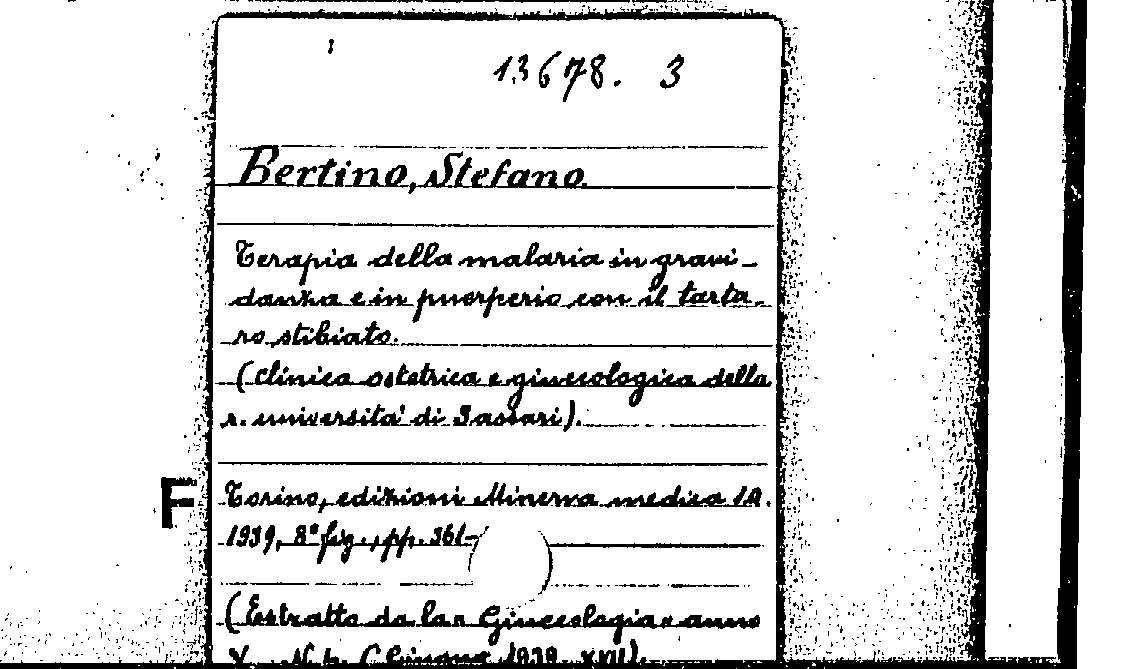 13678. 3
Bertino, Stefano.
Terapia della malaria in gravi-
danza e in puerperio con il tarta-
ro stibiato.
(Clinica ostetrica e ginecologica della
r. università di Sassari).
F
Torino, edizioni Minerva medica S.A.
1939, 8° fig., pp. 361-
(Estratto da la « Ginecologia » anno
V. N. 6. (Giugno 1939-XVII).